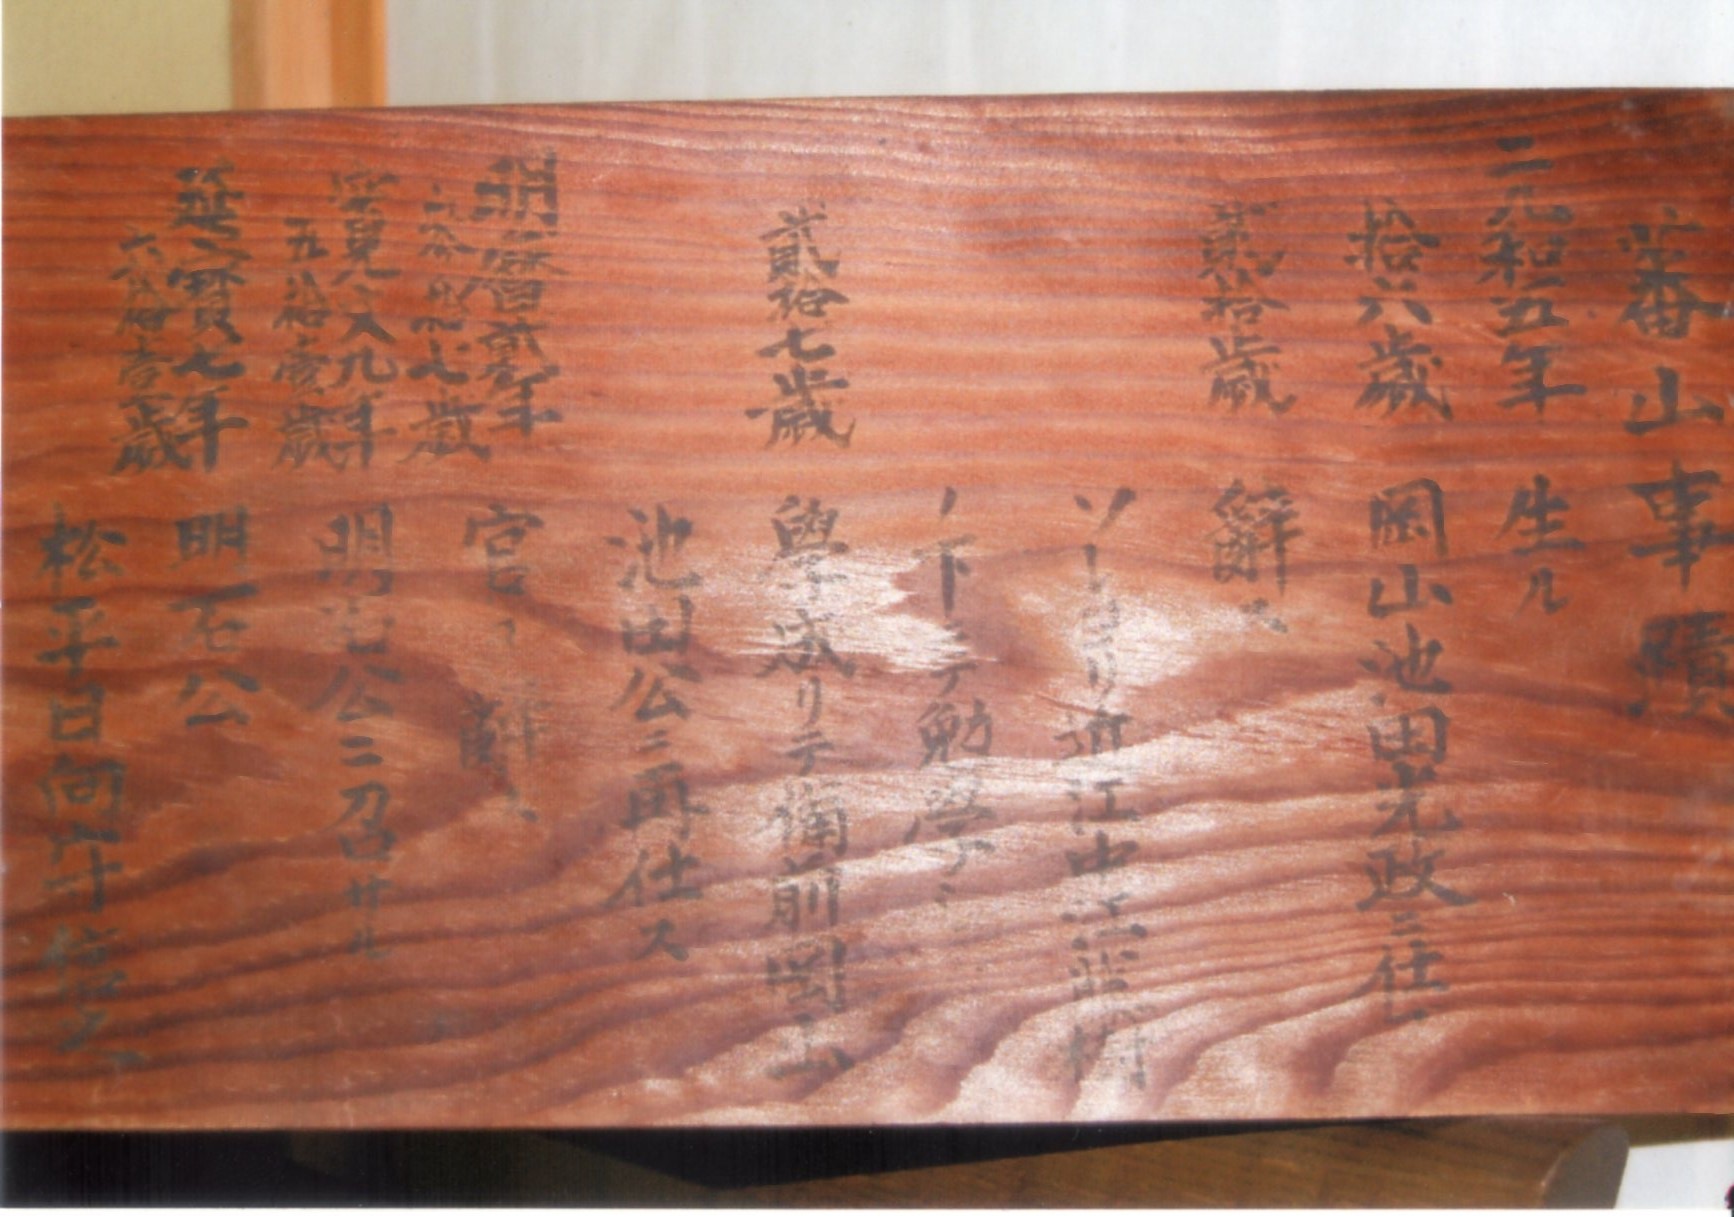 蕃山事蹟
元和五年 生ル
拾六歳 岡山池田光政ニ仕
貳拾歳 辭ス
ソレヨリ近江中江藤樹
ノ下ニテ勉学
貳拾七歳 學成リテ備前岡山
池田公ニ再仕ス
明暦貳年
七歳 官ヲ辞
寛文九年
五拾壹歳 明石公ニ召サル
延寶七年
六拾壹歳 明石公
松平日向守信之